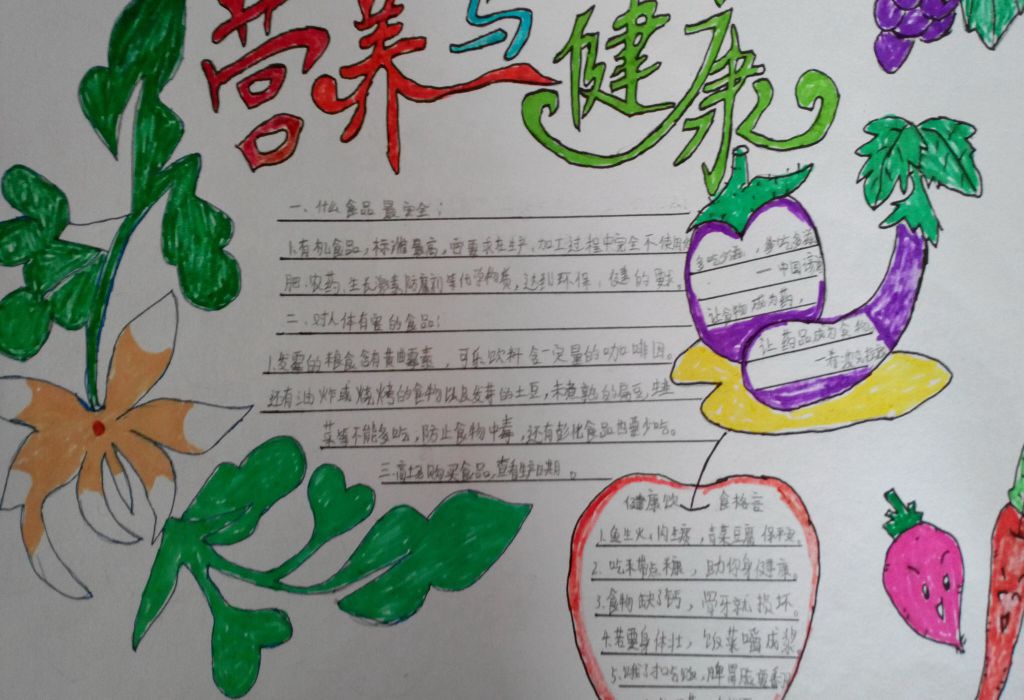 营养与健康
一、什么食品最安全：
1.有机食品，标准最高，它要求在生产，加工过程中完全不使用
肥、农药、生长激素、防腐剂等化学物质，达到环保、健的要求。
二、对人体有害的食品：
1.发霉的粮食含有黄曲霉素，可乐饮料含一定量的咖啡因。
还有油炸或烧烤的食物以及发芽的土豆，未煮熟的扁豆，
菜等不能多吃，防止食物中毒，还有膨化食品也要少吃。
三、商场购买食品，查看生产日期。
多吃蔬
—中国谚
让食物成为药，
让药品成为食物
健康饮食格言
1.鱼生火，肉生痰，青菜豆腐保平安。
2.吃米带点糠，助你身健康。
3.食物缺了钙，骨牙就损坏。
4.若要身体壮，饭菜嚼成浆。
5.饿了才吃饭，脾胃